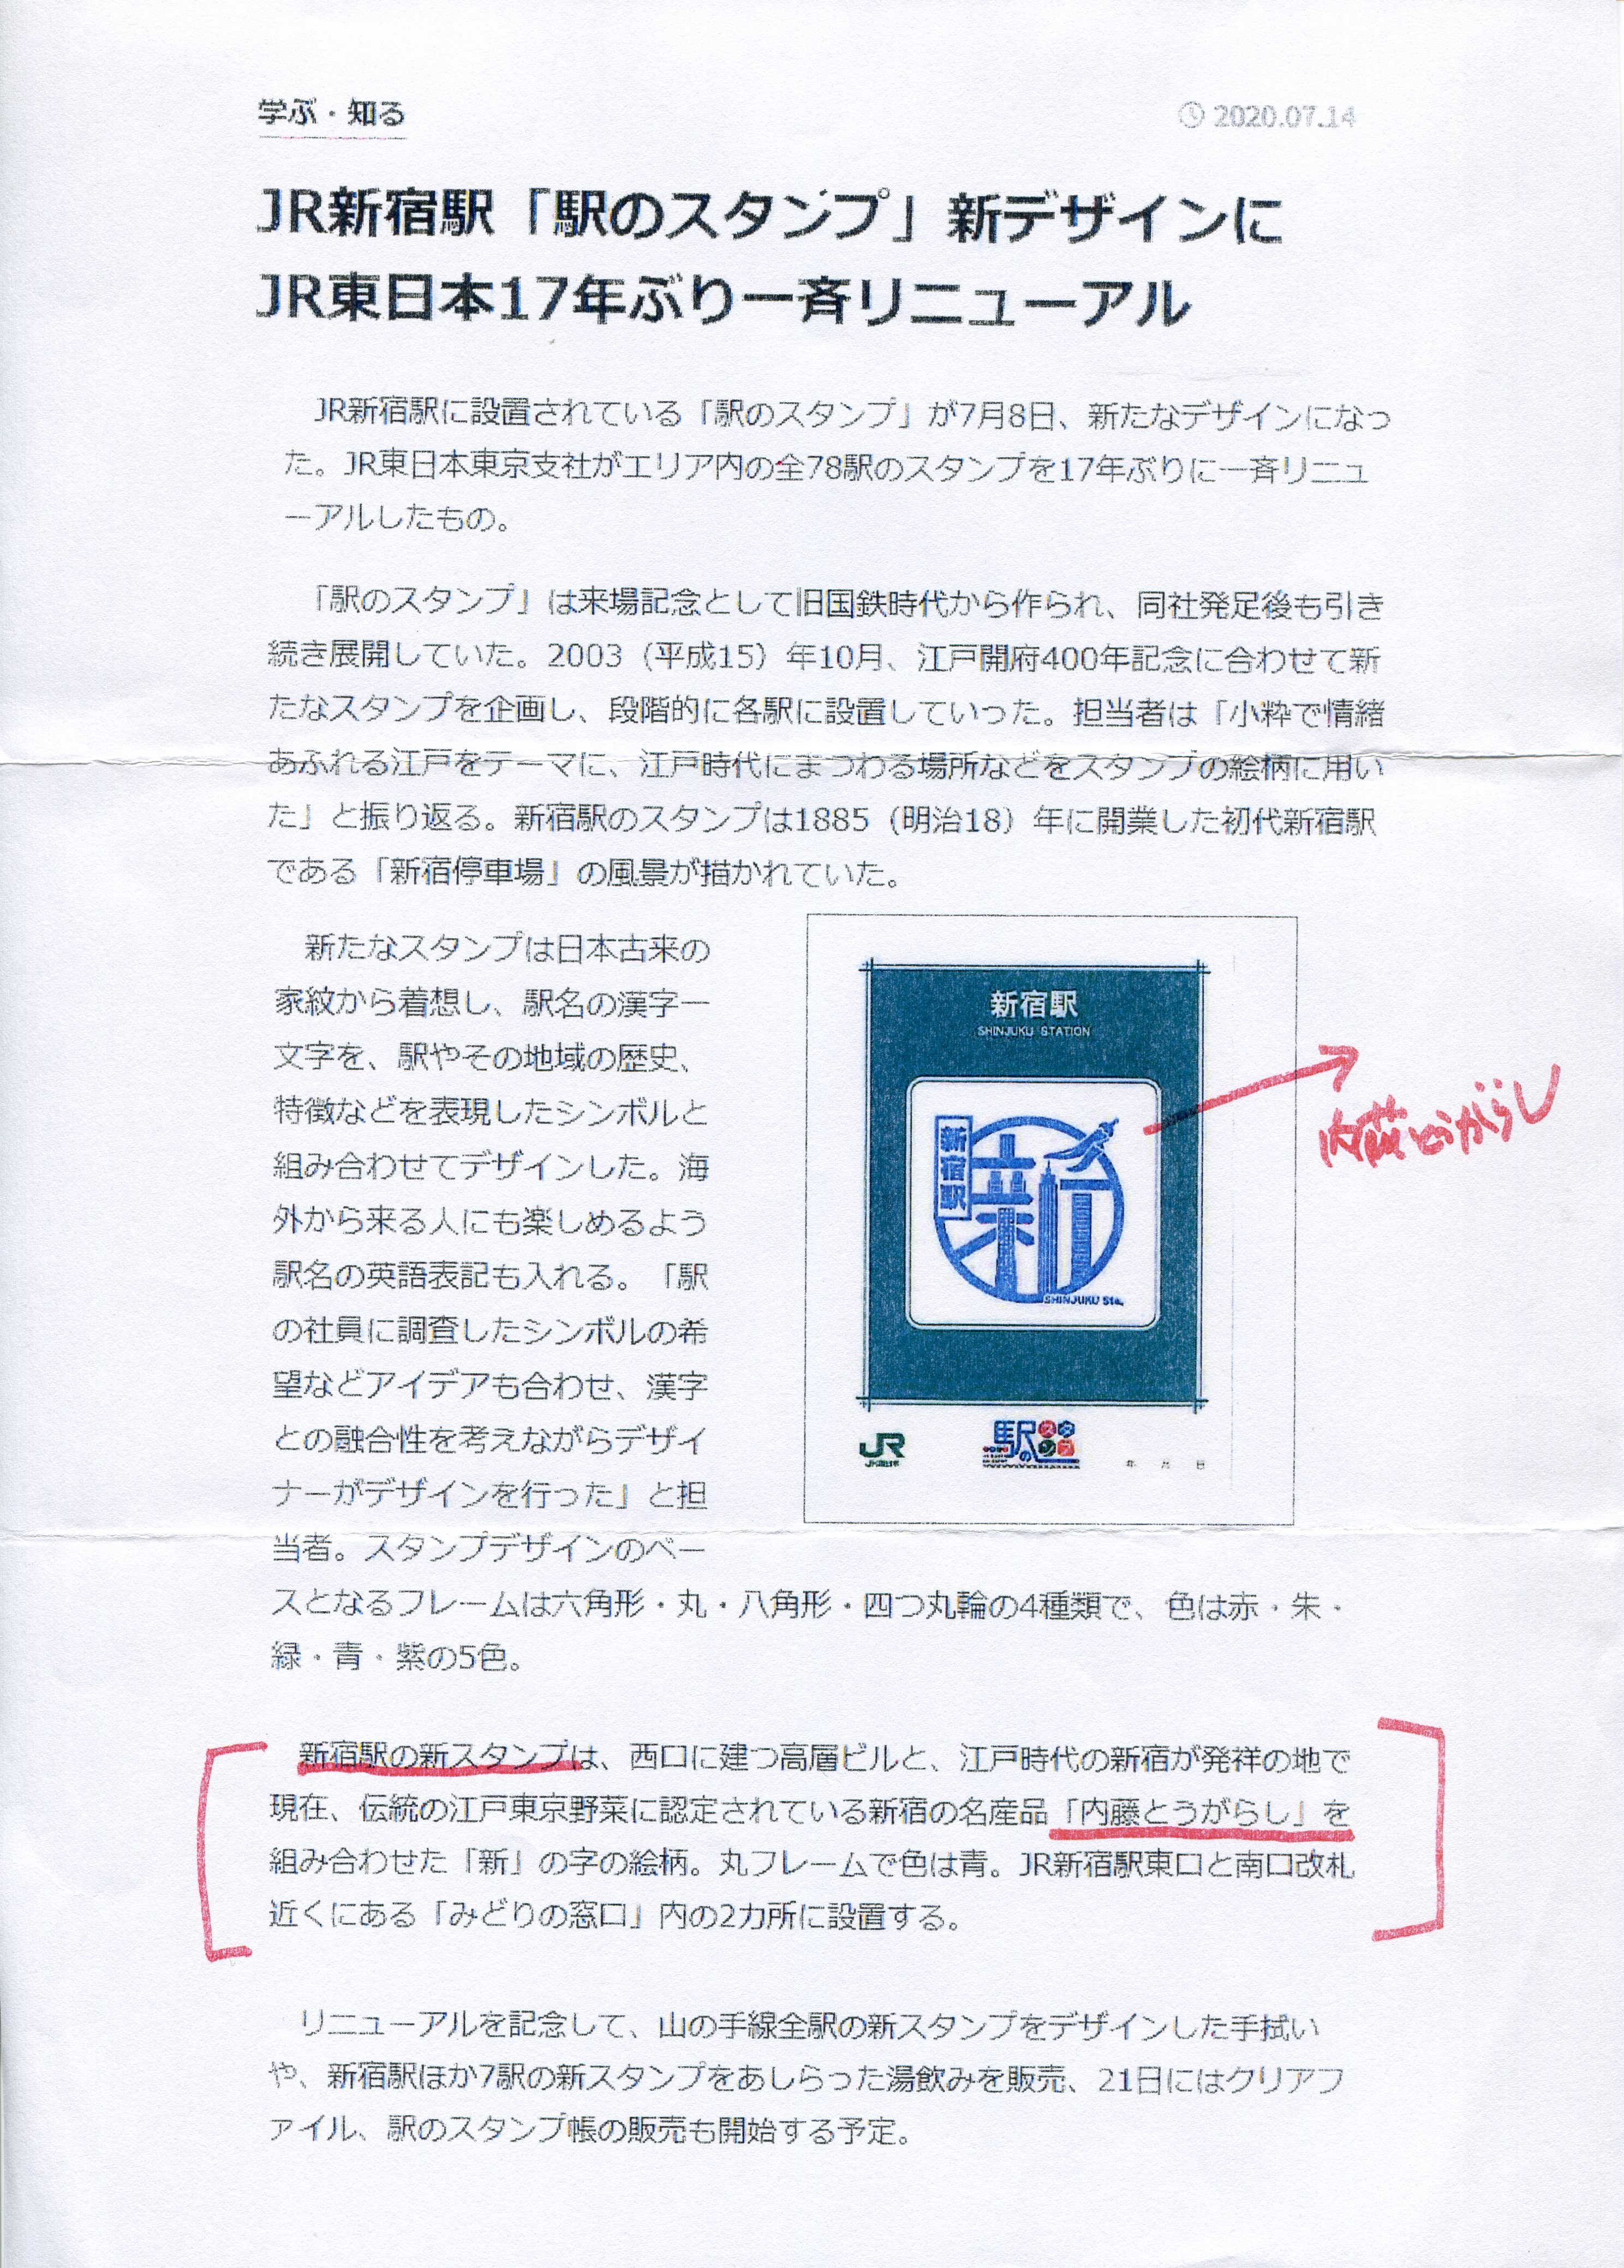 学ぶ・知る
2020.07.14
JR新宿駅「駅のスタンプ」新デザインに
JR東日本17年ぶり一斉リニューアル
JR新宿駅に設置されている「駅のスタンプ」が7月8日、新たなデザインになっ
た。JR東日本東京支社がエリア内の全78駅のスタンプを17年ぶりに一斉リニュ
ーアルしたもの。
「駅のスタンプ」は来場記念として旧国鉄時代から作られ、同社発足後も引き
続き展開していた。2003（平成15）年10月、江戸開府400年記念に合わせて新
たなスタンプを企画し、段階的に各駅に設置していった。担当者は「小粋で情緒
あふれる江戸をテーマに、江戸時代にまつわる場所などをスタンプの絵柄に用い
た」と振り返る。新宿駅のスタンプは1885（明治18）年に開業した初代新宿駅
である「新宿停車場」の風景が描かれていた。
新たなスタンプは日本古来の
家紋から着想し、駅名の漢字一
文字を、駅やその地域の歴史、
特徴などを表現したシンボルと
組み合わせてデザインした。海
外から来る人にも楽しめるよう
駅名の英語表記も入れる。「駅
の社員に調査したシンボルの希
望などアイデアも合わせ、漢字
との融合性を考えながらデザイ
ナーがデザインを行った」と担
当者。スタンプデザインのベー
スとなるフレームは六角形・丸・八角形・四つ丸輪の4種類で、色は赤・朱・
緑・青・紫の5色。
新宿駅
SHINJUKU STATION
新宿駅
新
SHINJUKU Sta.
JR
JR東日本
駅のスタンプ
年 月 日
内藤とうがらし
新宿駅の新スタンプは、西口に建つ高層ビルと、江戸時代の新宿が発祥の地で
現在、伝統の江戸東京野菜に認定されている新宿の名産品「内藤とうがらし」を
組み合わせた「新」の字の絵柄。丸フレームで色は青。JR新宿駅東口と南口改札
近くにある「みどりの窓口」内の2カ所に設置する。
リニューアルを記念して、山の手線全駅の新スタンプをデザインした手拭い
や、新宿駅ほか7駅の新スタンプをあしらった湯飲みを販売、21日にはクリアフ
ァイル、駅のスタンプ帳の販売も開始する予定。